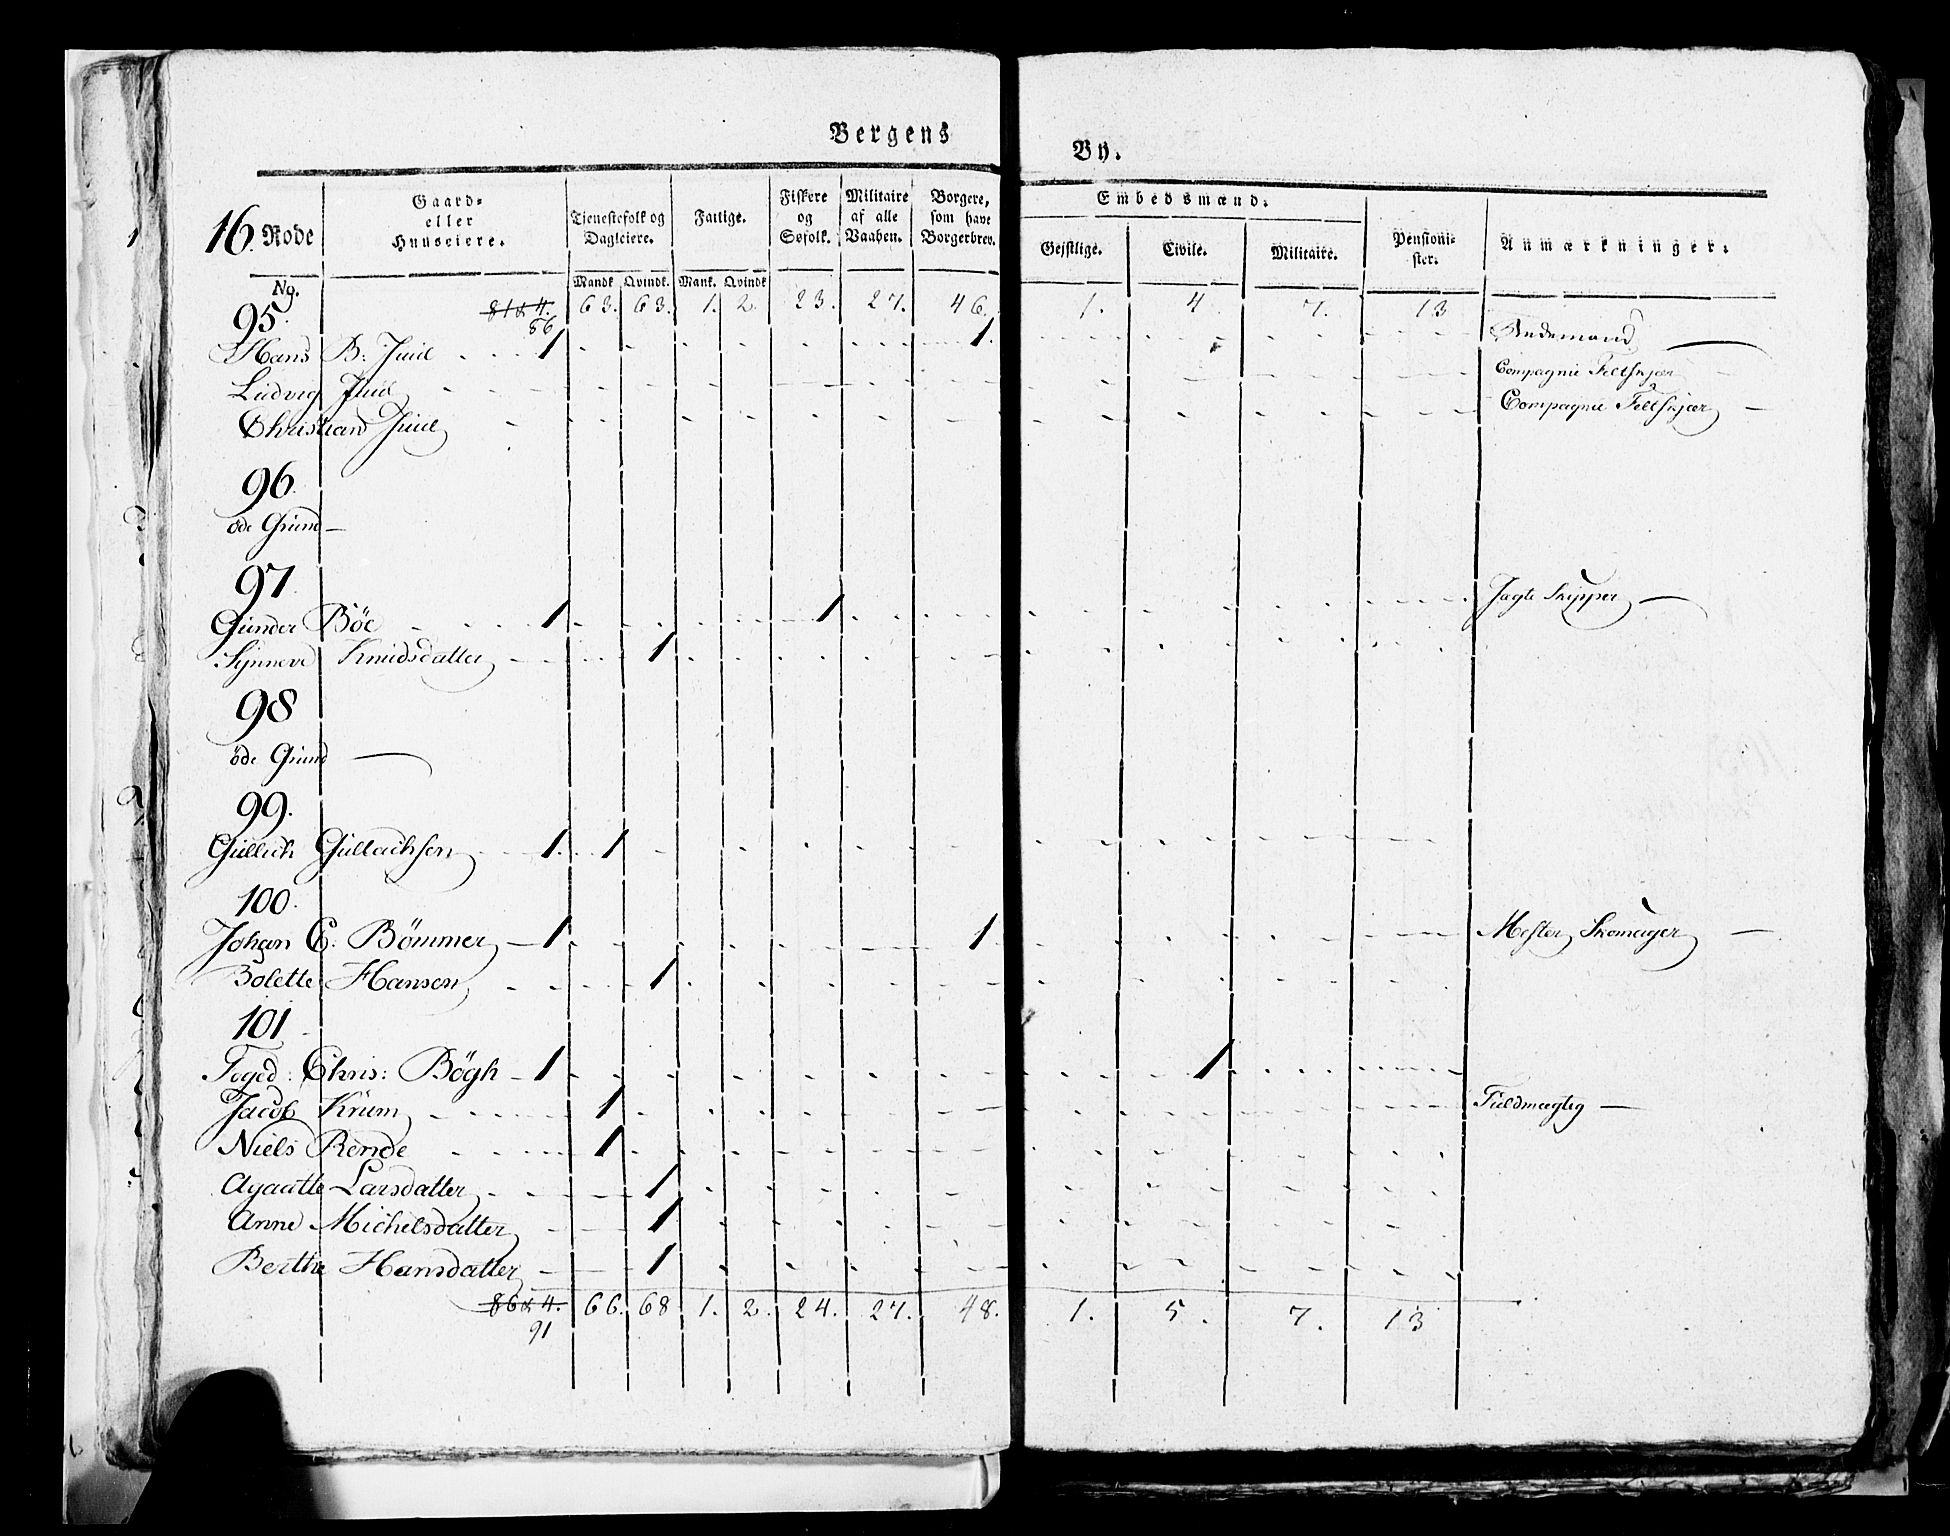 Bergens By.
16 Rode
Gaard- eller Huuseiere.
Tienestefolk og Dagleiere.
Fattige.
Fiskere og Søfolk.
Militaire af alle Vaaben.
Borgere, som have Borgerbrev.
Embedsmænd.
Geistlige. Civile. Militaire.
Pensioni- ster.
Anmærkninger.
No. Mandk Qvindk. Mank. Qvindk
95. 81 & 4. 63. 63. 1. 2. 23. 27. 46. 1. 4. 7. 13
86
Hans B: Juul 1 1.
Ludvig Juul Compagnie Feltskjær
Christian Juul Compagnie Feltskjær
96.
öde Grund
97.
Gunder Böe 1 1 Jagte Skipper
Synneve Knudsdatter 1
98
öde Grund
99.
Gullich Gullachsen 1 1
100.
Johan C: Bömmer 1 1 Mester Skomager
Bolette Hansen 1
101
Foged: Chris: Bögh 1 1
Jacob Krum 1 Fuldmægtig
Niels Rende 1
Agaathe Larsdatter 1
Anne Michelsdatter 1
Berthe Hansdatter 1
86 & 4. 66. 68 1. 2. 24. 27. 48. 1. 5. 7. 13
91